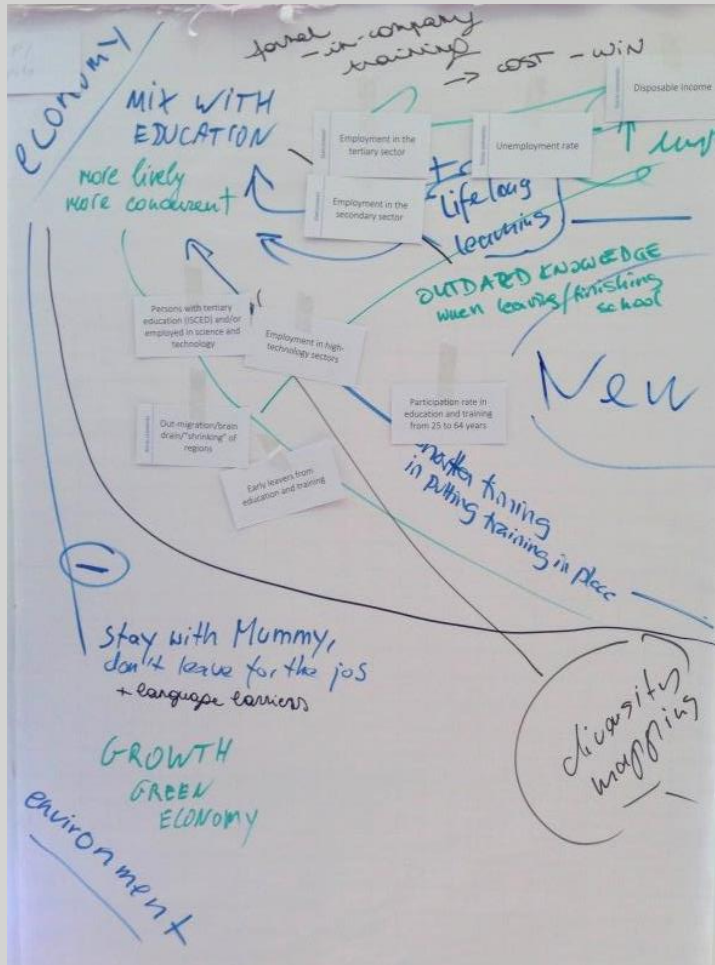 economy
formal
- in-company
training
→ COST - WIN
MIX WITH
EDUCATION
more lively
more concurrent
Employment in the
tertiary sector
Unemployment rate
Disposable income
Employment in the
secondary sector
Lifelong
learning
OUTDARD KNOWLEDGE
when leaving/finishing
school
Persons with tertiary
education (ISCED) and/or
employed in science and
technology
Employment in high-
technology sectors
New
Participation rate in
education and training
from 25 to 64 years
Out-migration/brain
drain/"shrinking" of
regions
Early leavers from
education and training
timing
in putting training in place
stay with Mummy,
don't leave for the job
+ language barriers
diversity
mapping
GROWTH
GREEN
ECONOMY
environment